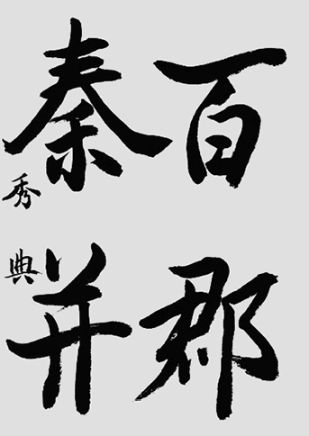 百郡
秦并
秀典